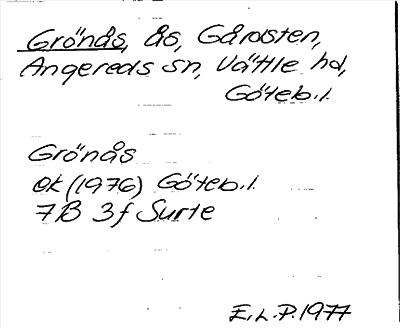 Grönås, ås, Gårdsten,
Angereds sn, Vättle hd,
Göteb.l.
Grönås
ek (1976) Göteb.l.
7B 3f Surte
E.L.P. 1977